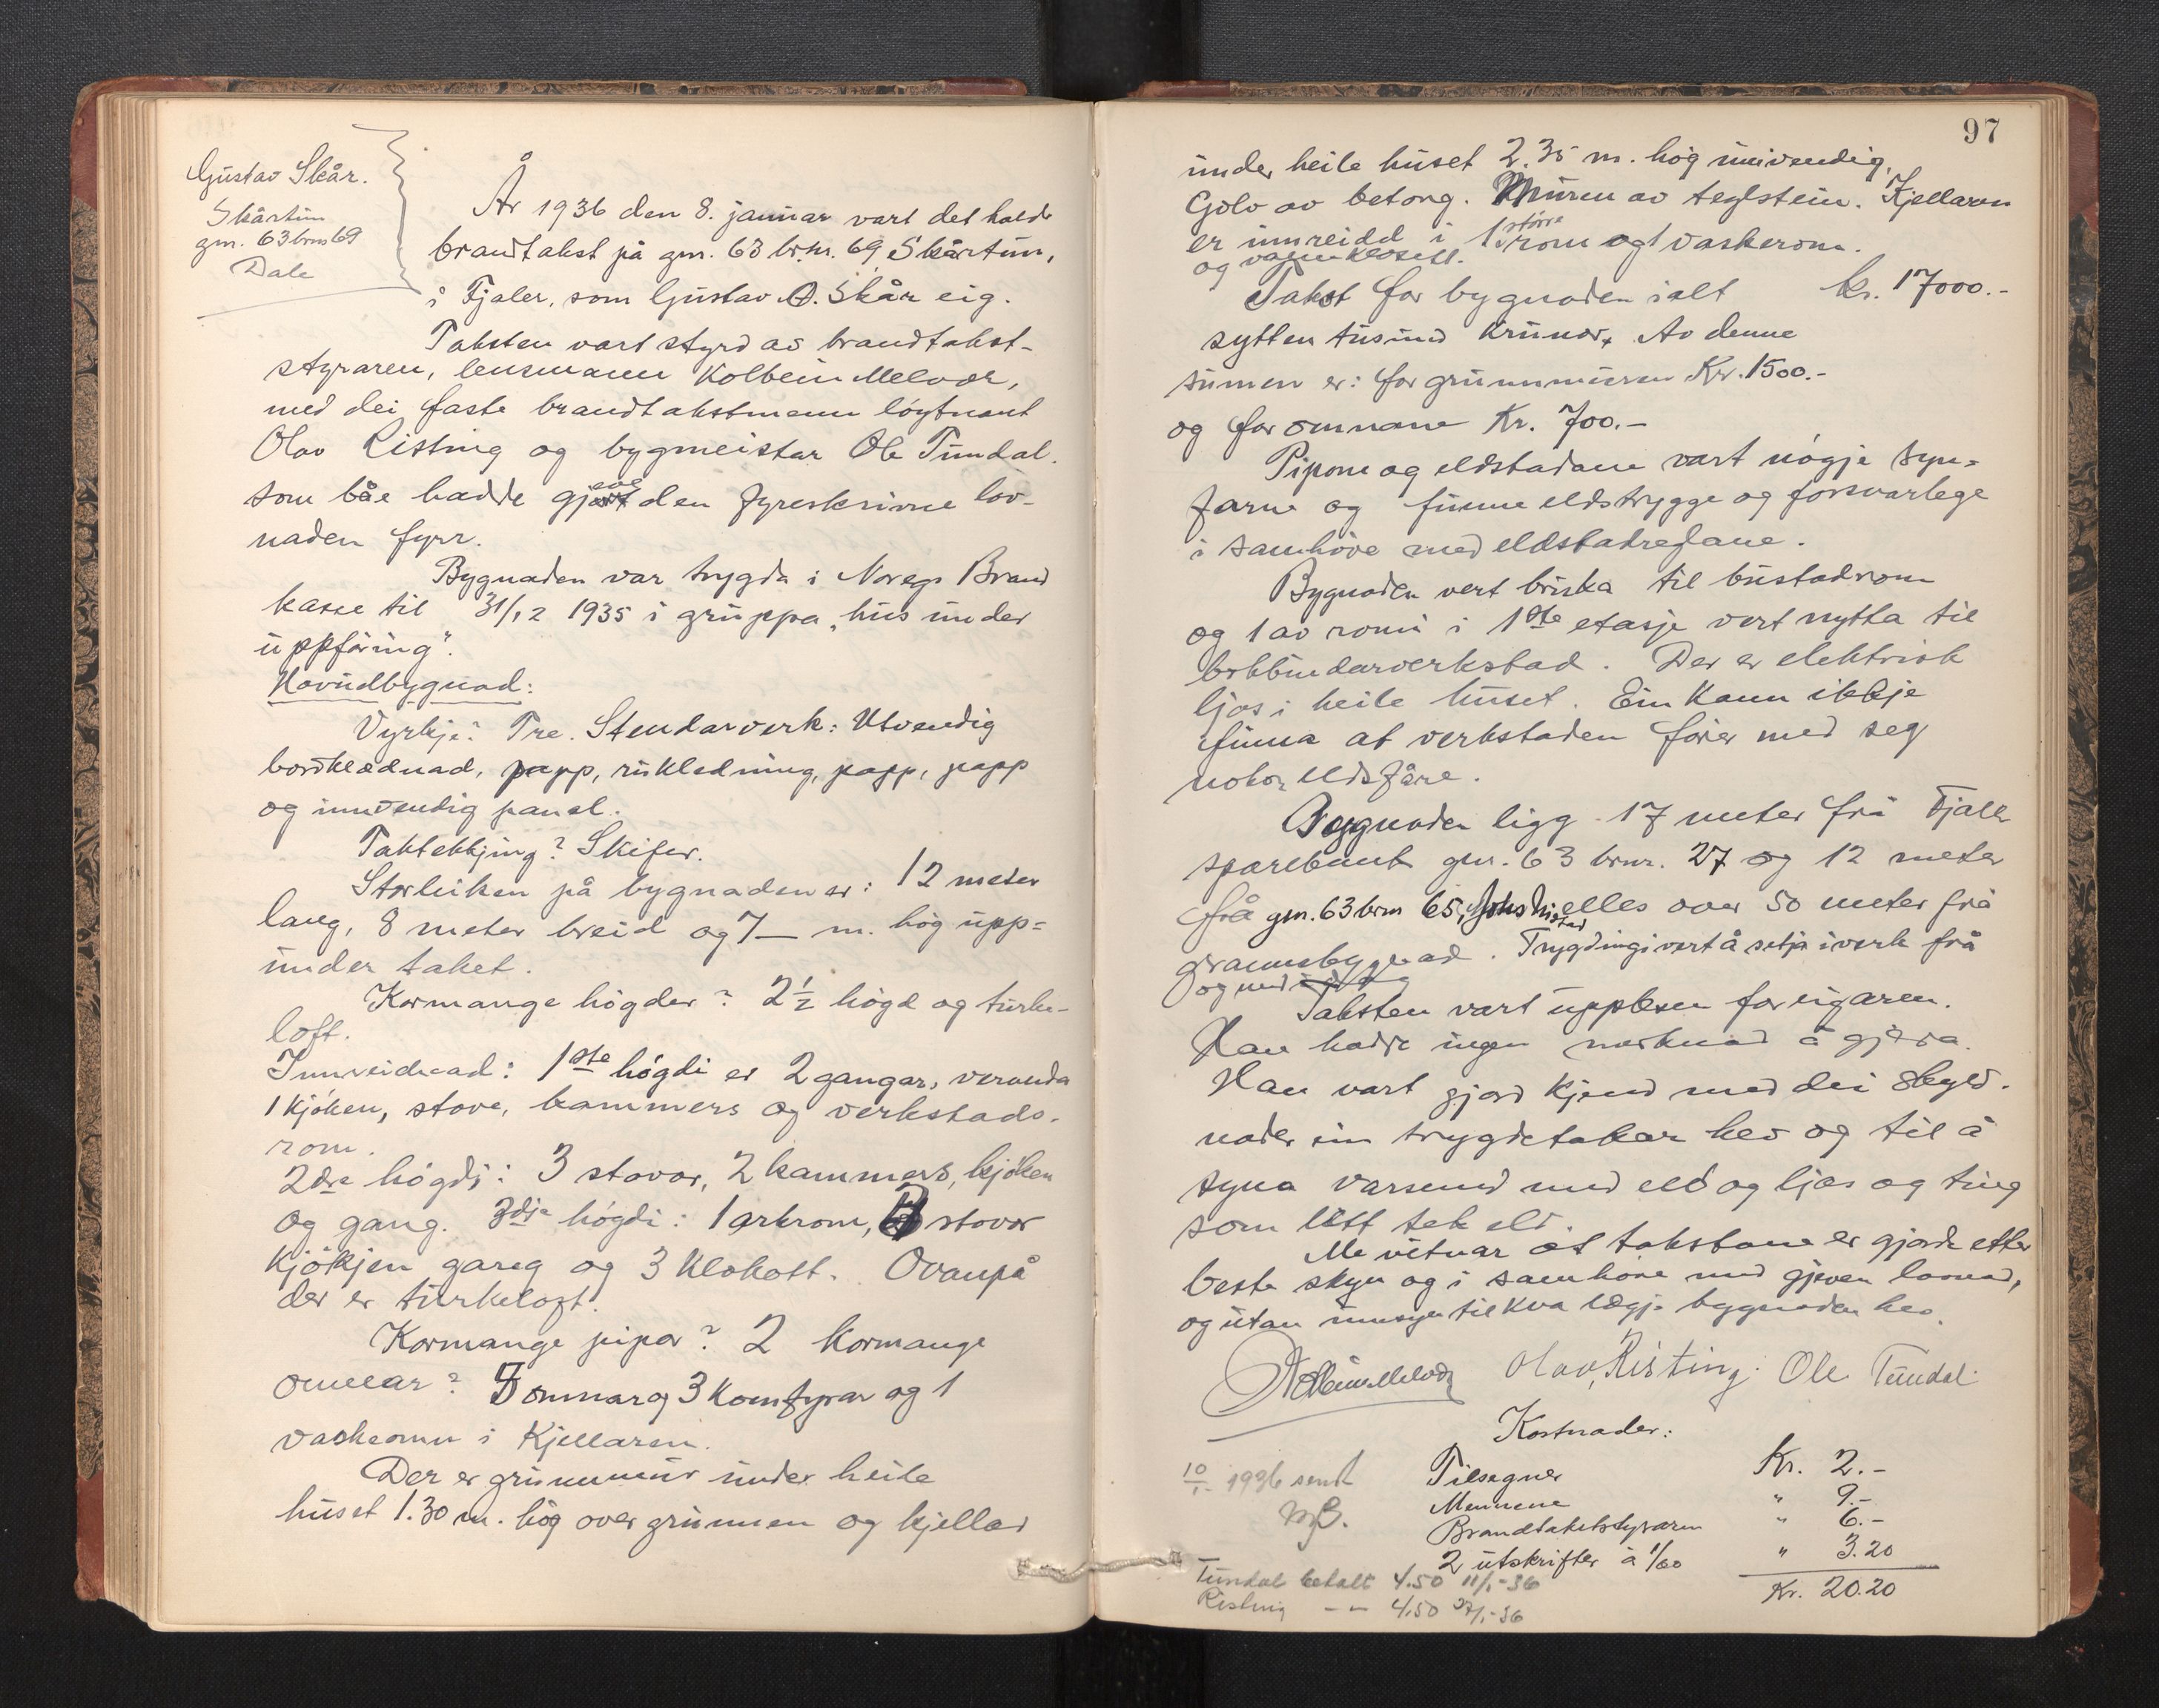 Gustav Skår.
Skårtun
gnr. 63 brnr 69
Dale
År 1936 den 8. januar vart det halde
brandtakst på gnr. 63 br.nr. 69 Skårtun,
i Fjaler, som Gustav O. Skår eig.
Taksten vart styrd av brandtakst-
styraren, lensmann Kolbein Melvær,
med dei faste brandtakstmenn løytnant
Olav Risting og bygmeister Ole Tundal.
som båe hadde gjeve den fyreskrivne lov-
naden fyrr.
Bygnaden var trygda i Noregs Brand
kasse til 31/12 1935 i gruppa „hus under
uppføring".
Hovudbygnad:
Vyrkje? Tre. Stendarverk: Utvendig
bordklædnad, papp, rukledning, papp, papp
og innvendig panel.
Taktekkjing? Skifer.
Storleiken på bygnaden er: 12 meter
lang, 8 meter breid og 7— m. høg upp=
under taket.
Kormange høgder? 2½ høgd og turke-
loft.
Innreidnad: 1ste høgdi er 2 gangar, veranda
1 kjøken, stove, kammers og verkstads-
rom.
2dre høgdi: 3 stovor, 2 kammers, kjøken
og gang. 3dje høgdi: 1 arkrom, 3 stovor
kjøkjen gang og 3 klokott. Ovanpå
der er turkeloft.
Kormange pipor? 2 kormange
omnar? 7 omnar og 3 komfyrar og 1
vaskeomn i kjellaren.
Der er grunnmur under heile
huset 1.30 m. høg over grunnen og kjellar
97
under heile huset 2.35 m. høg innvendig.
Golv av betong. Muren av teglstein. Kjellaren
er innreidd i 1 større rom og 1 vaskerom.
og vassklosett.
Takst for bygnaden ialt kr. 17000.-
sytten tusund krunor. Av denne
sumen er: for grunnmuren Kr. 1500.-
og for omnane Kr. 700.-
Pipone og eldstadane vart nøgje syn=
farne og funne eldstrygge og forsvarlege
i samhøve med eldstadreglane.
Bygnaden vert bruka til bustadrom
og 1 av romi i 1ste etasje vert nytta til
bokbindarverkstad. Der er elektrisk
ljos i heile huset. Ein kann ikkje
finna at verkstaden fører med seg
nokor eldsfåre.
Bygnaden ligg 17 meter frå Fjaler
sparebank gnr. 63 brnr. 27 og 12 meter
frå gnr. 63 brnr 65, elles over 50 meter frå
grannebygnad. Trygdingi vert å setja iverk frå
og med
Taksten vart upplesen for eigaren.
Han hadde ingen merknad å gjera.
Han vart gjord kjend med dei skyld-
nader ein trygdetakar hev og til å
syna varsemd med eld og ljos og ting
som lett tek eld.
Me vitnar at takstane er gjorde etter
beste skyn og i samhøve med gjeven lovnad,
og utan umsyn til kva lægje bygnaden hev.
Kolbein Melvær Olav Risting. Ole Tundal.
Kostnader:
10/1- 1936 sendt Tilsegner Kr. 2.-
Mennene " 9.-
Brandtakststyraren " 6.-
2 utskrifter à 1/60 " 3.20
Kr. 20.20
Tundal betalt 4.50 11/1-36
Risting — — 4.50 27/1-36